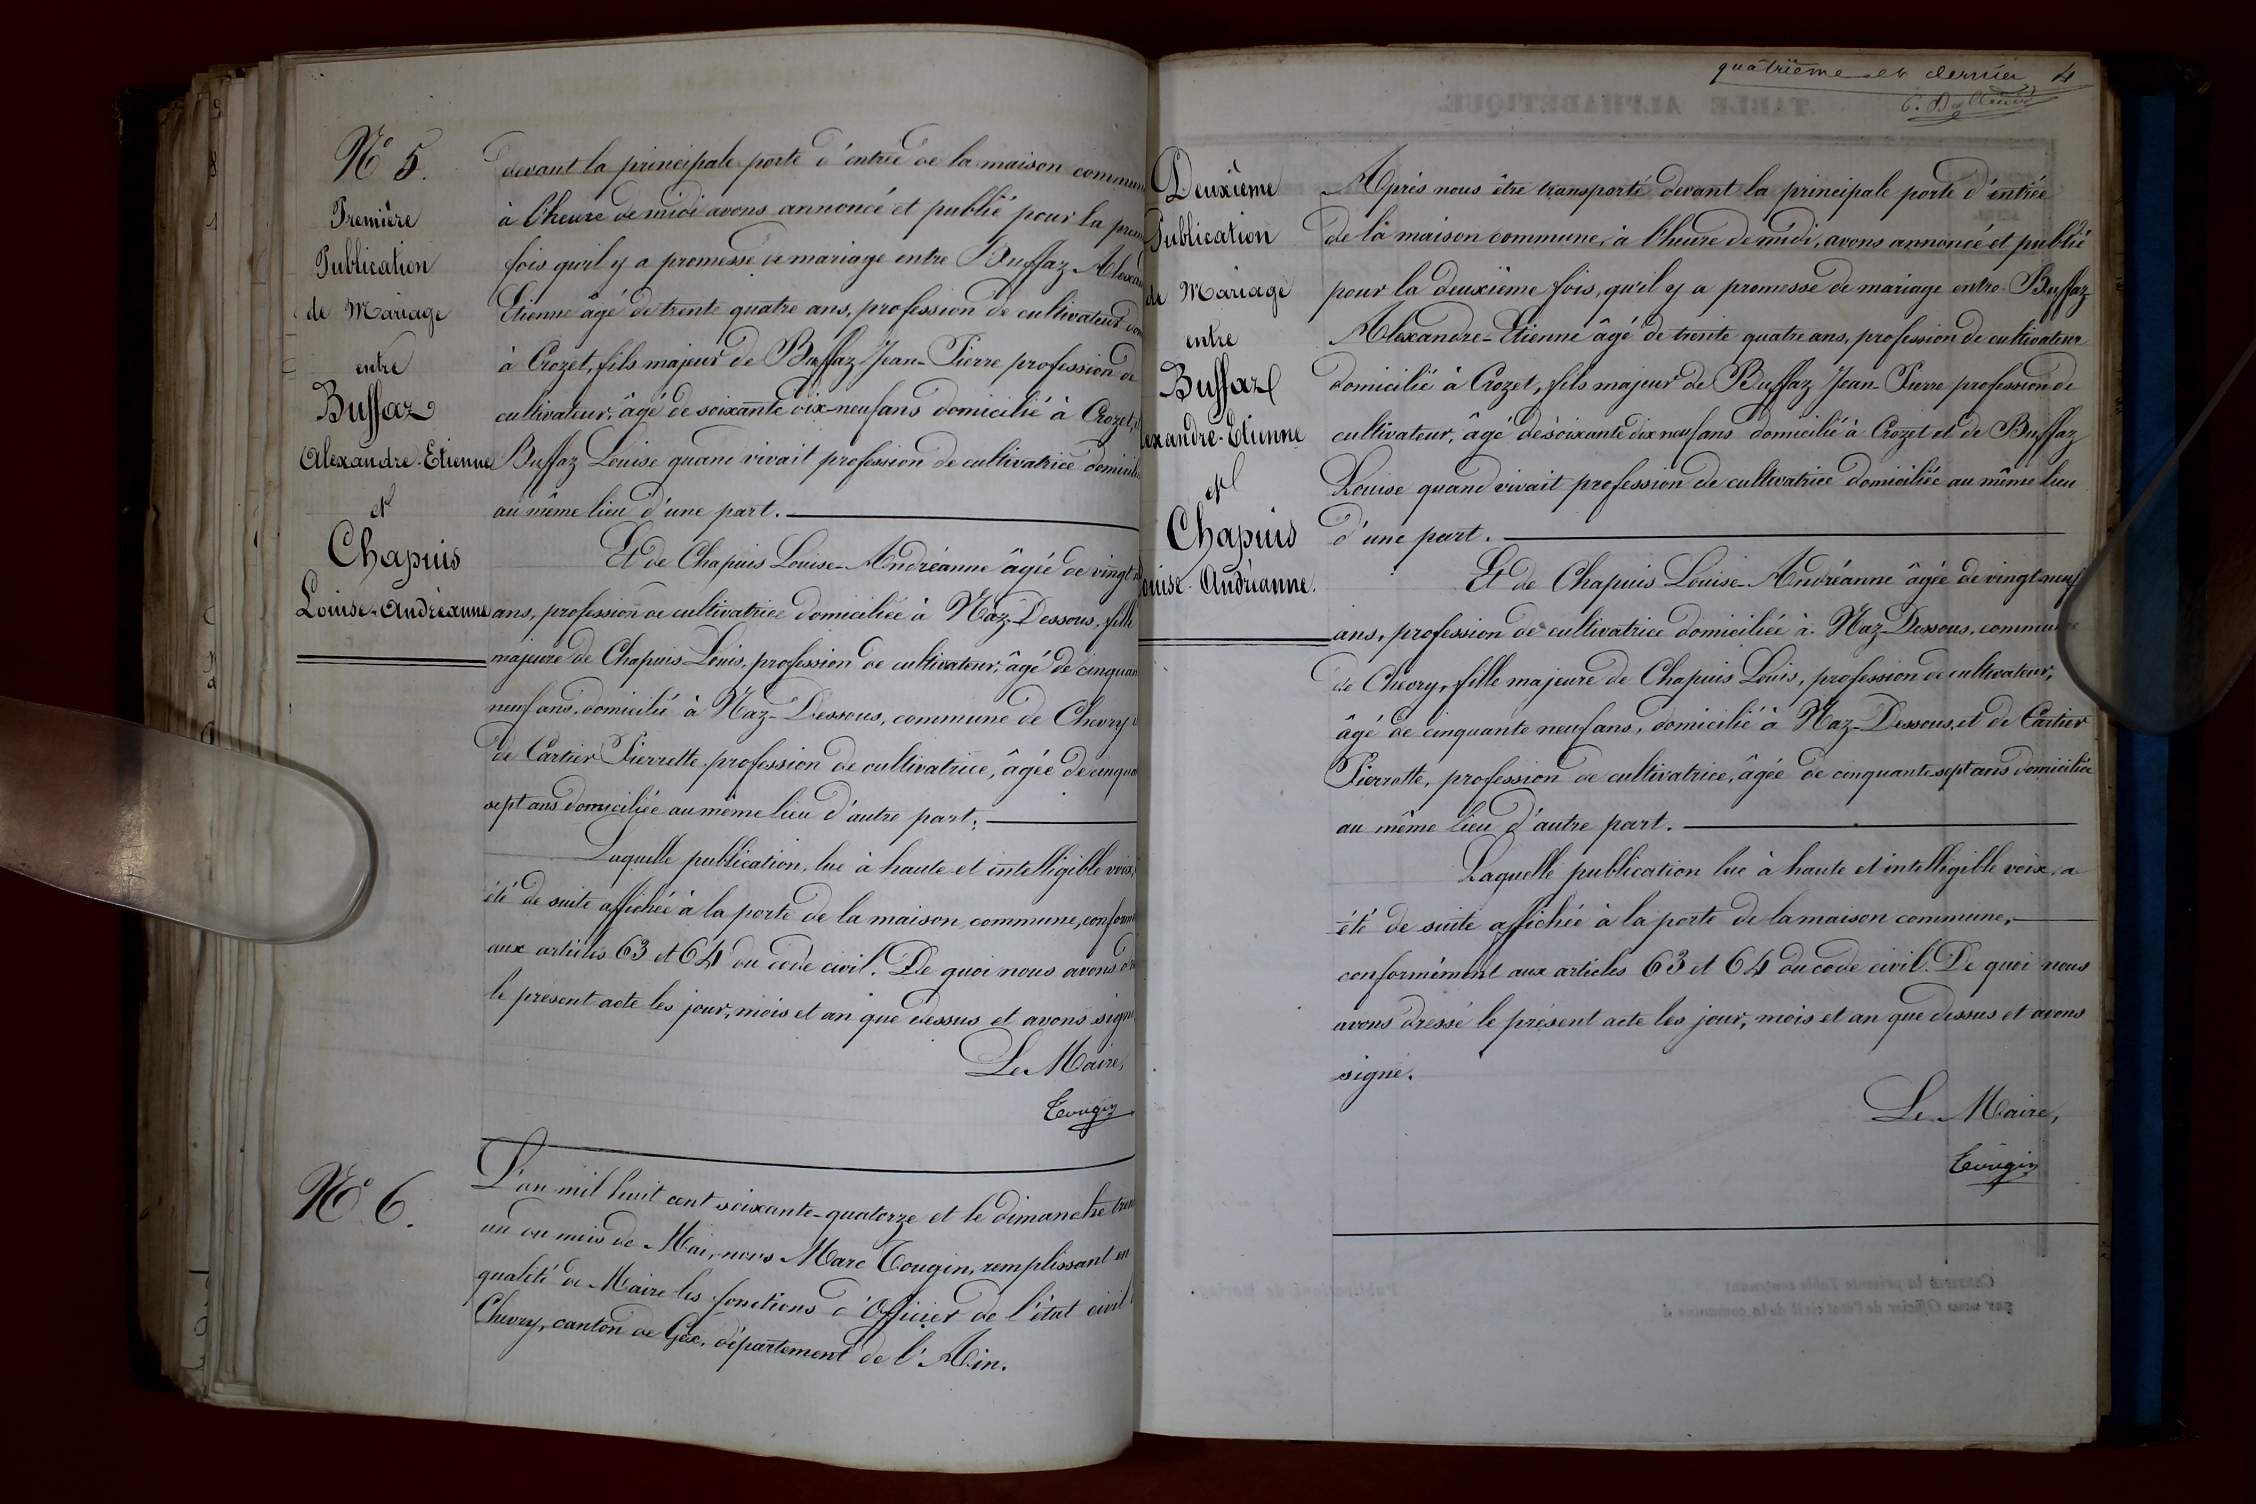 N° 5.
Première
Publication
de Mariage
entre
Buffaz
Alexandre-Etienne
et
Chapuis
Louise-Andréanne
devant la principale porte d'entrée de la maison commun
à l'heure de midi avons annoncé et publié pour la prem
fois qu'il y a promesse de mariage entre Buffaz Alexan
Etienne âgé de trente quatre ans, profession de cultivateur dom
à Crozet, fils majeur de Buffaz Jean-Pierre profession de
cultivateur, âgé de soixante dix-neuf ans domicilié à Crozet,
Buffaz Louise quand vivait profession de cultivatrice domicili
au même lieu d'une part.
Et de Chapuis Louise-Andréanne âgée de vingt
ans, profession de cultivatrice domiciliée à Naz-Dessous, fille
majeure de Chapuis Louis, profession de cultivateur, âgé de cinquan
neuf ans, domicilié à Naz-Dessous, commune de Chevry
de Cartier Pierrette profession de cultivatrice, âgée de cinqua
sept ans domiciliée au même lieu d'autre part;
Laquelle publication, lue à haute et intelligible voix,
été de suite affichée à la porte de la maison commune, conform
aux articles 63 et 64 du code civil. De quoi nous avons dre
le présent acte les jour, mois et an que dessus et avons signé
Le Maire,
Tougin
N° 6.
L'an mil huit cent soixante-quatorze et le dimanche tren
un du mois de Mai, nous Marc Tougin, remplissant en
qualité de Maire les fonctions d'Officier de l'état civil
Chevry, canton de Gex, département de l'Ain.
quatrième et dernier 4
TABLE ALPHABÉTIQUE
Deuxième
Publication
de Mariage
entre
Buffaz
exandre-Etienne
et
Chapuis
ouise-Andréanne.
Après nous être transporté devant la principale porte d'entrée
de la maison commune, à l'heure de midi, avons annoncé et publié
pour la deuxième fois, qu'il y a promesse de mariage entre Buffaz
Alexandre-Etienne âgé de trente quatre ans, profession de cultivateur
domicilié à Crozet, fils majeur de Buffaz Jean-Pierre profession de
cultivateur, âgé de soixante dix neuf ans domicilié à Crozet et de Buffaz
Louise quand vivait profession de cultivatrice domiciliée au même lieu
d'une part.
Et de Chapuis Louise-Andréanne âgée de vingt-neuf
ans, profession de cultivatrice domiciliée à Naz-Dessous, commune
de Chevry, fille majeure de Chapuis Louis, profession de cultivateur,
âgé de cinquante neuf ans, domicilié à Naz-Dessous, et de Cartier
Pierrette, profession de cultivatrice, âgée de cinquante sept ans domiciliée
au même lieu d'autre part.
Laquelle publication lue à haute et intelligible voix, a
été de suite affichée à la porte de la maison commune,
conformément aux articles 63 et 64 du code civil. De quoi nous
avons dressé le présent acte les jour, mois et an que dessus et avons
signé.
Le Maire,
Tougin